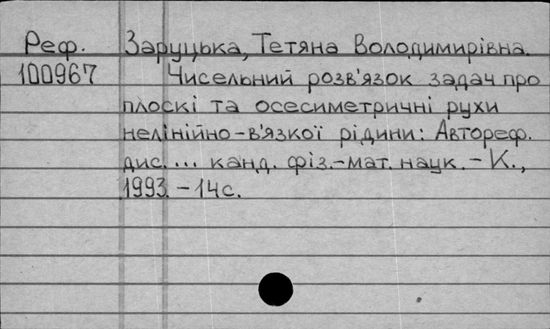 Реф. Заруцька, Тетяна Володимирівна.
100967 Чисельний розв'язок задач про
плоскі та осесиметричні рухи
нелінійно-в'язкої рідини: Автореф.
дис. ... канд. фіз.-мат. наук. - К.,
1993. - 14с.